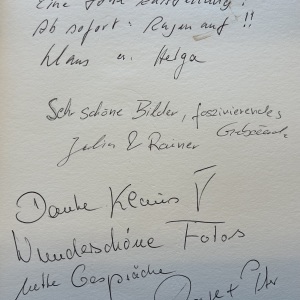 Ab sofort: Augen auf!!
Klaus u. Helga
Sehr schöne Bilder, faszinierendes
Julia & Rainer
Danke Klaus
Wunderschöne Fotos
nette Gespräche